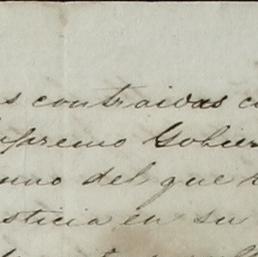 s contraidas co
upremo Gobier
uno del que h
sticia en su